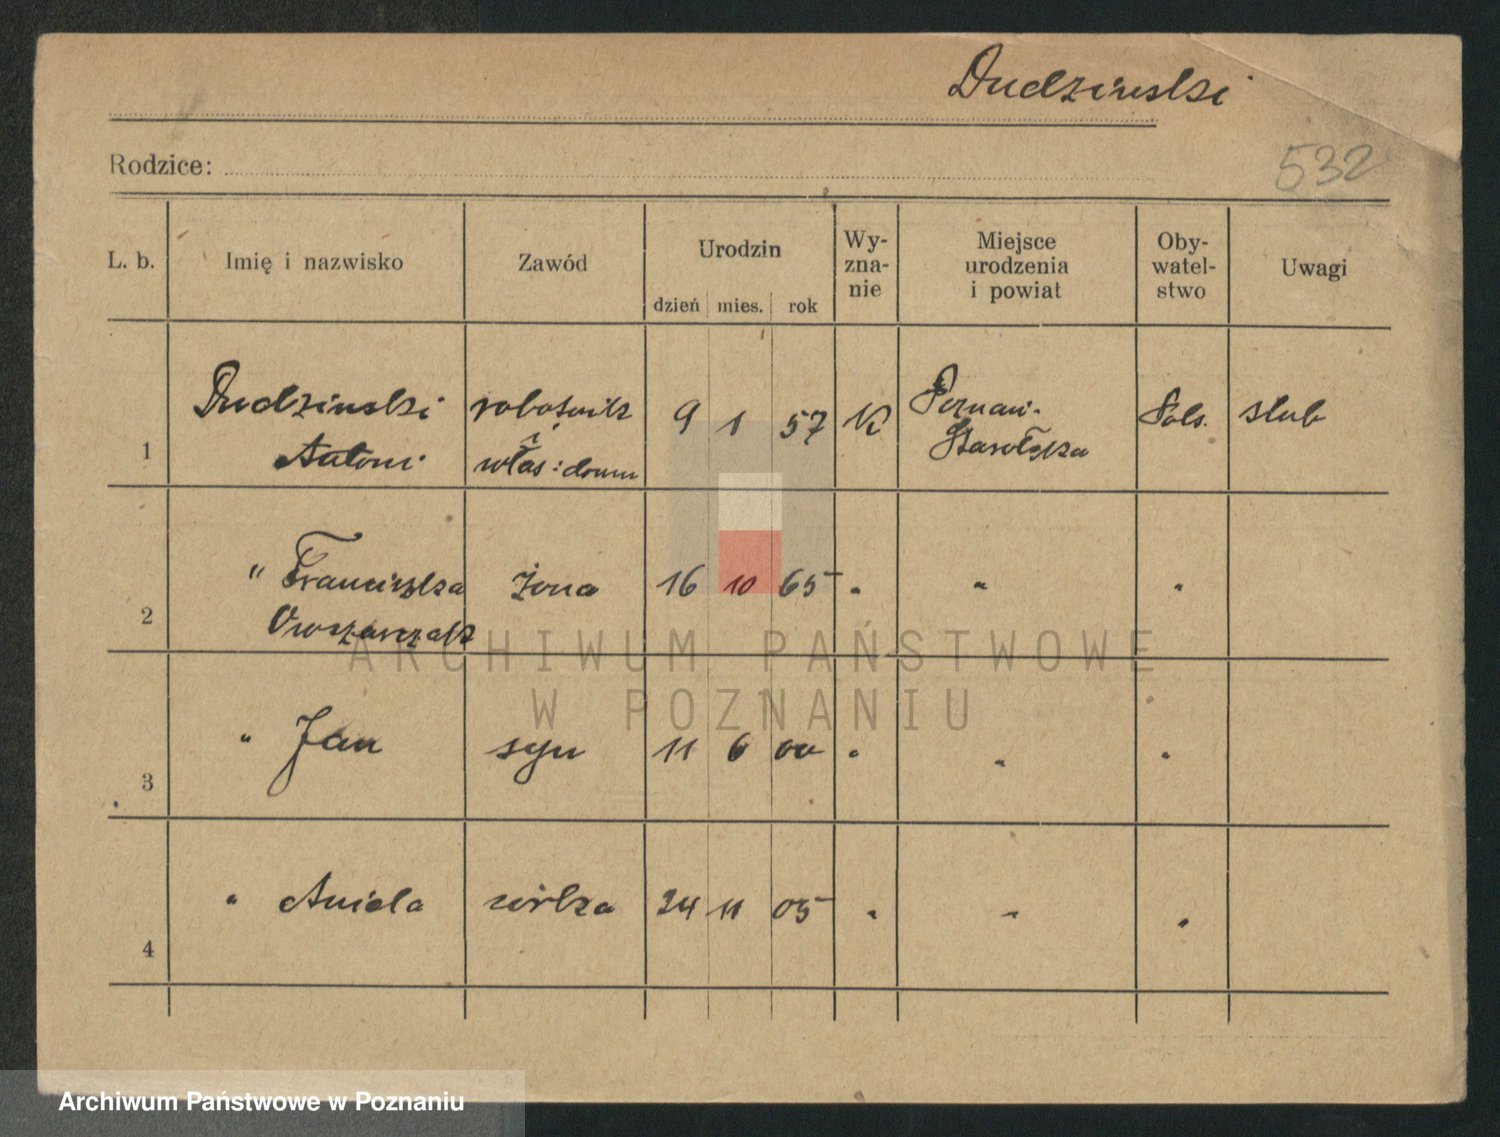 Dudzinski
Rodzice:
532
L. b.
Imię i nazwisko
Zawód
Urodzin
dzień mies. rok
Wy-
zna-
nie
Miejsce
urodzenia
i powiat
Oby-
watel-
stwo
Uwagi
1
Dudzinski
Antoni
robotnik
i
włas: domu
9 1 57
K
Poznań-
Starołęka
Pols.
slub
2
" Franciszka
Owczarczak
żona
16 10 65
"
"
"
3
" Jan
syn
11 6 00
"
"
"
4
" Aniela
córka
24 11 05
"
"
"
ARCHIWUM PAŃSTWOWE
W POZNANIU
Archiwum Państwowe w Poznaniu